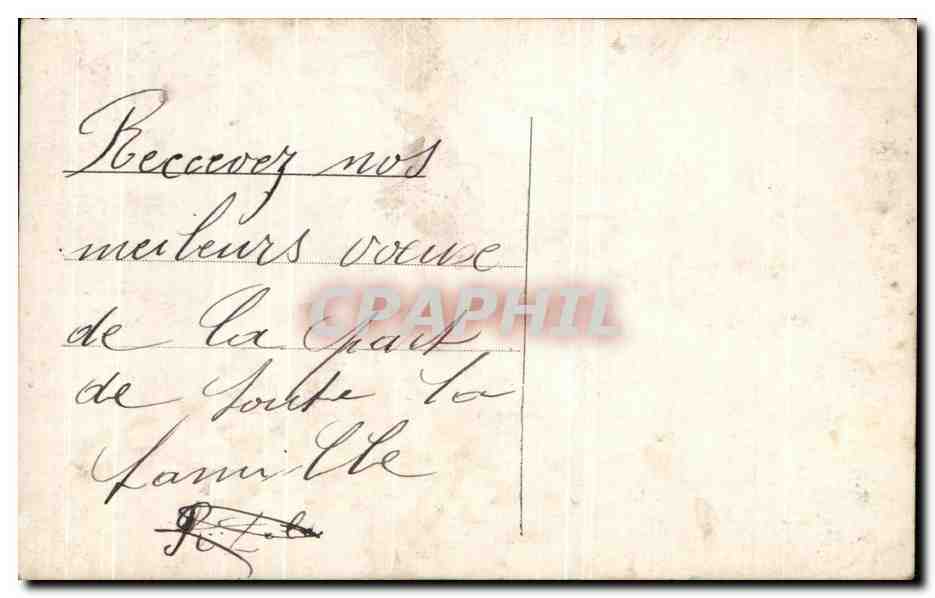 Recevez nos
meileurs voeux
de la part
de toute la
famille
CPAPHIL